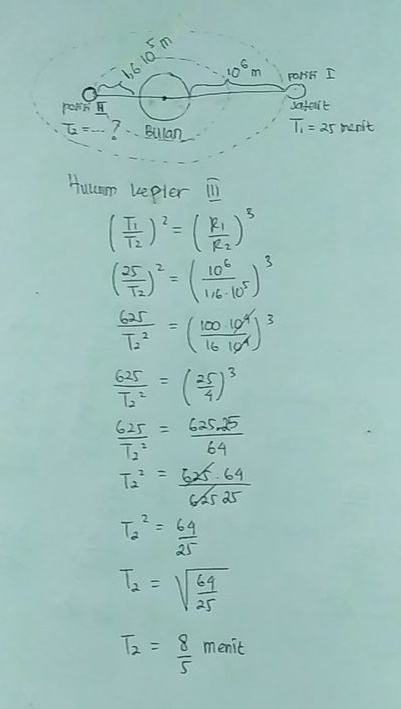 1,6.10⁵ m
10⁶ m
posisi II
posisi I
T₂ = --- ?
Bulan
satelit
T₁ = 25 menit
Hukum kepler III
(T₁/T₂)² = (R₁/R₂)³
(25/T₂)² = (10⁶/1,6.10⁵)³
625/T₂² = (100.10⁴/16 10⁴)³
625/T₂² = (25/4)³
625/T₂² = 625.25/64
T₂² = 625.64/625 25
T₂² = 64/25
T₂ = √(64/25)
T₂ = 8/5 menit